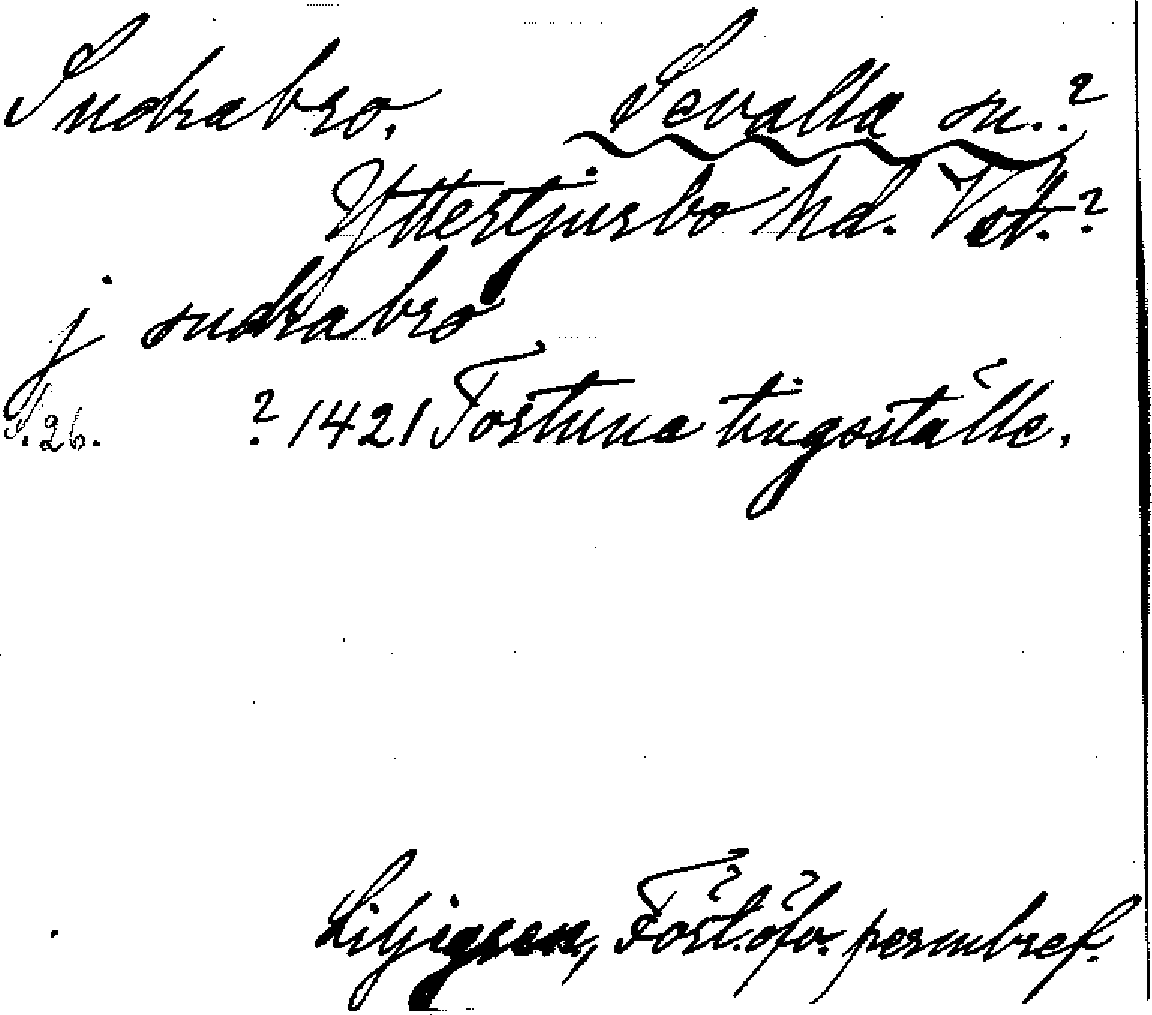 Sudrabro. Sevalla sn.?
Yttertjurbo hd. Vstm.?
j sudrabro
S. 26. ? 1421 Fortuna tingsställe.
Liljegren, Fört. öfv. permbref.